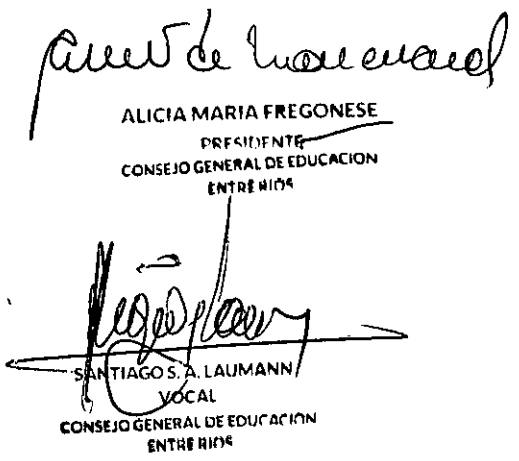 ALICIA MARIA FREGONESE
PRESIDENTE
CONSEJO GENERAL DE EDUCACION
ENTRE RIOS
SANTIAGO S. A. LAUMANN
VOCAL
CONSEJO GENERAL DE EDUCACION
ENTRE RIOS